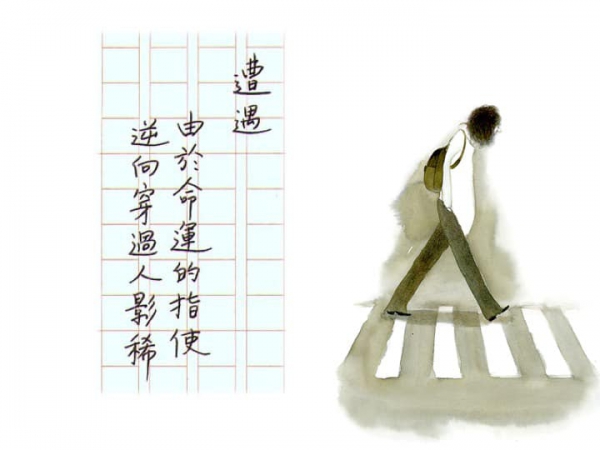 遭遇
由於命運的指使
逆向穿過人影稀